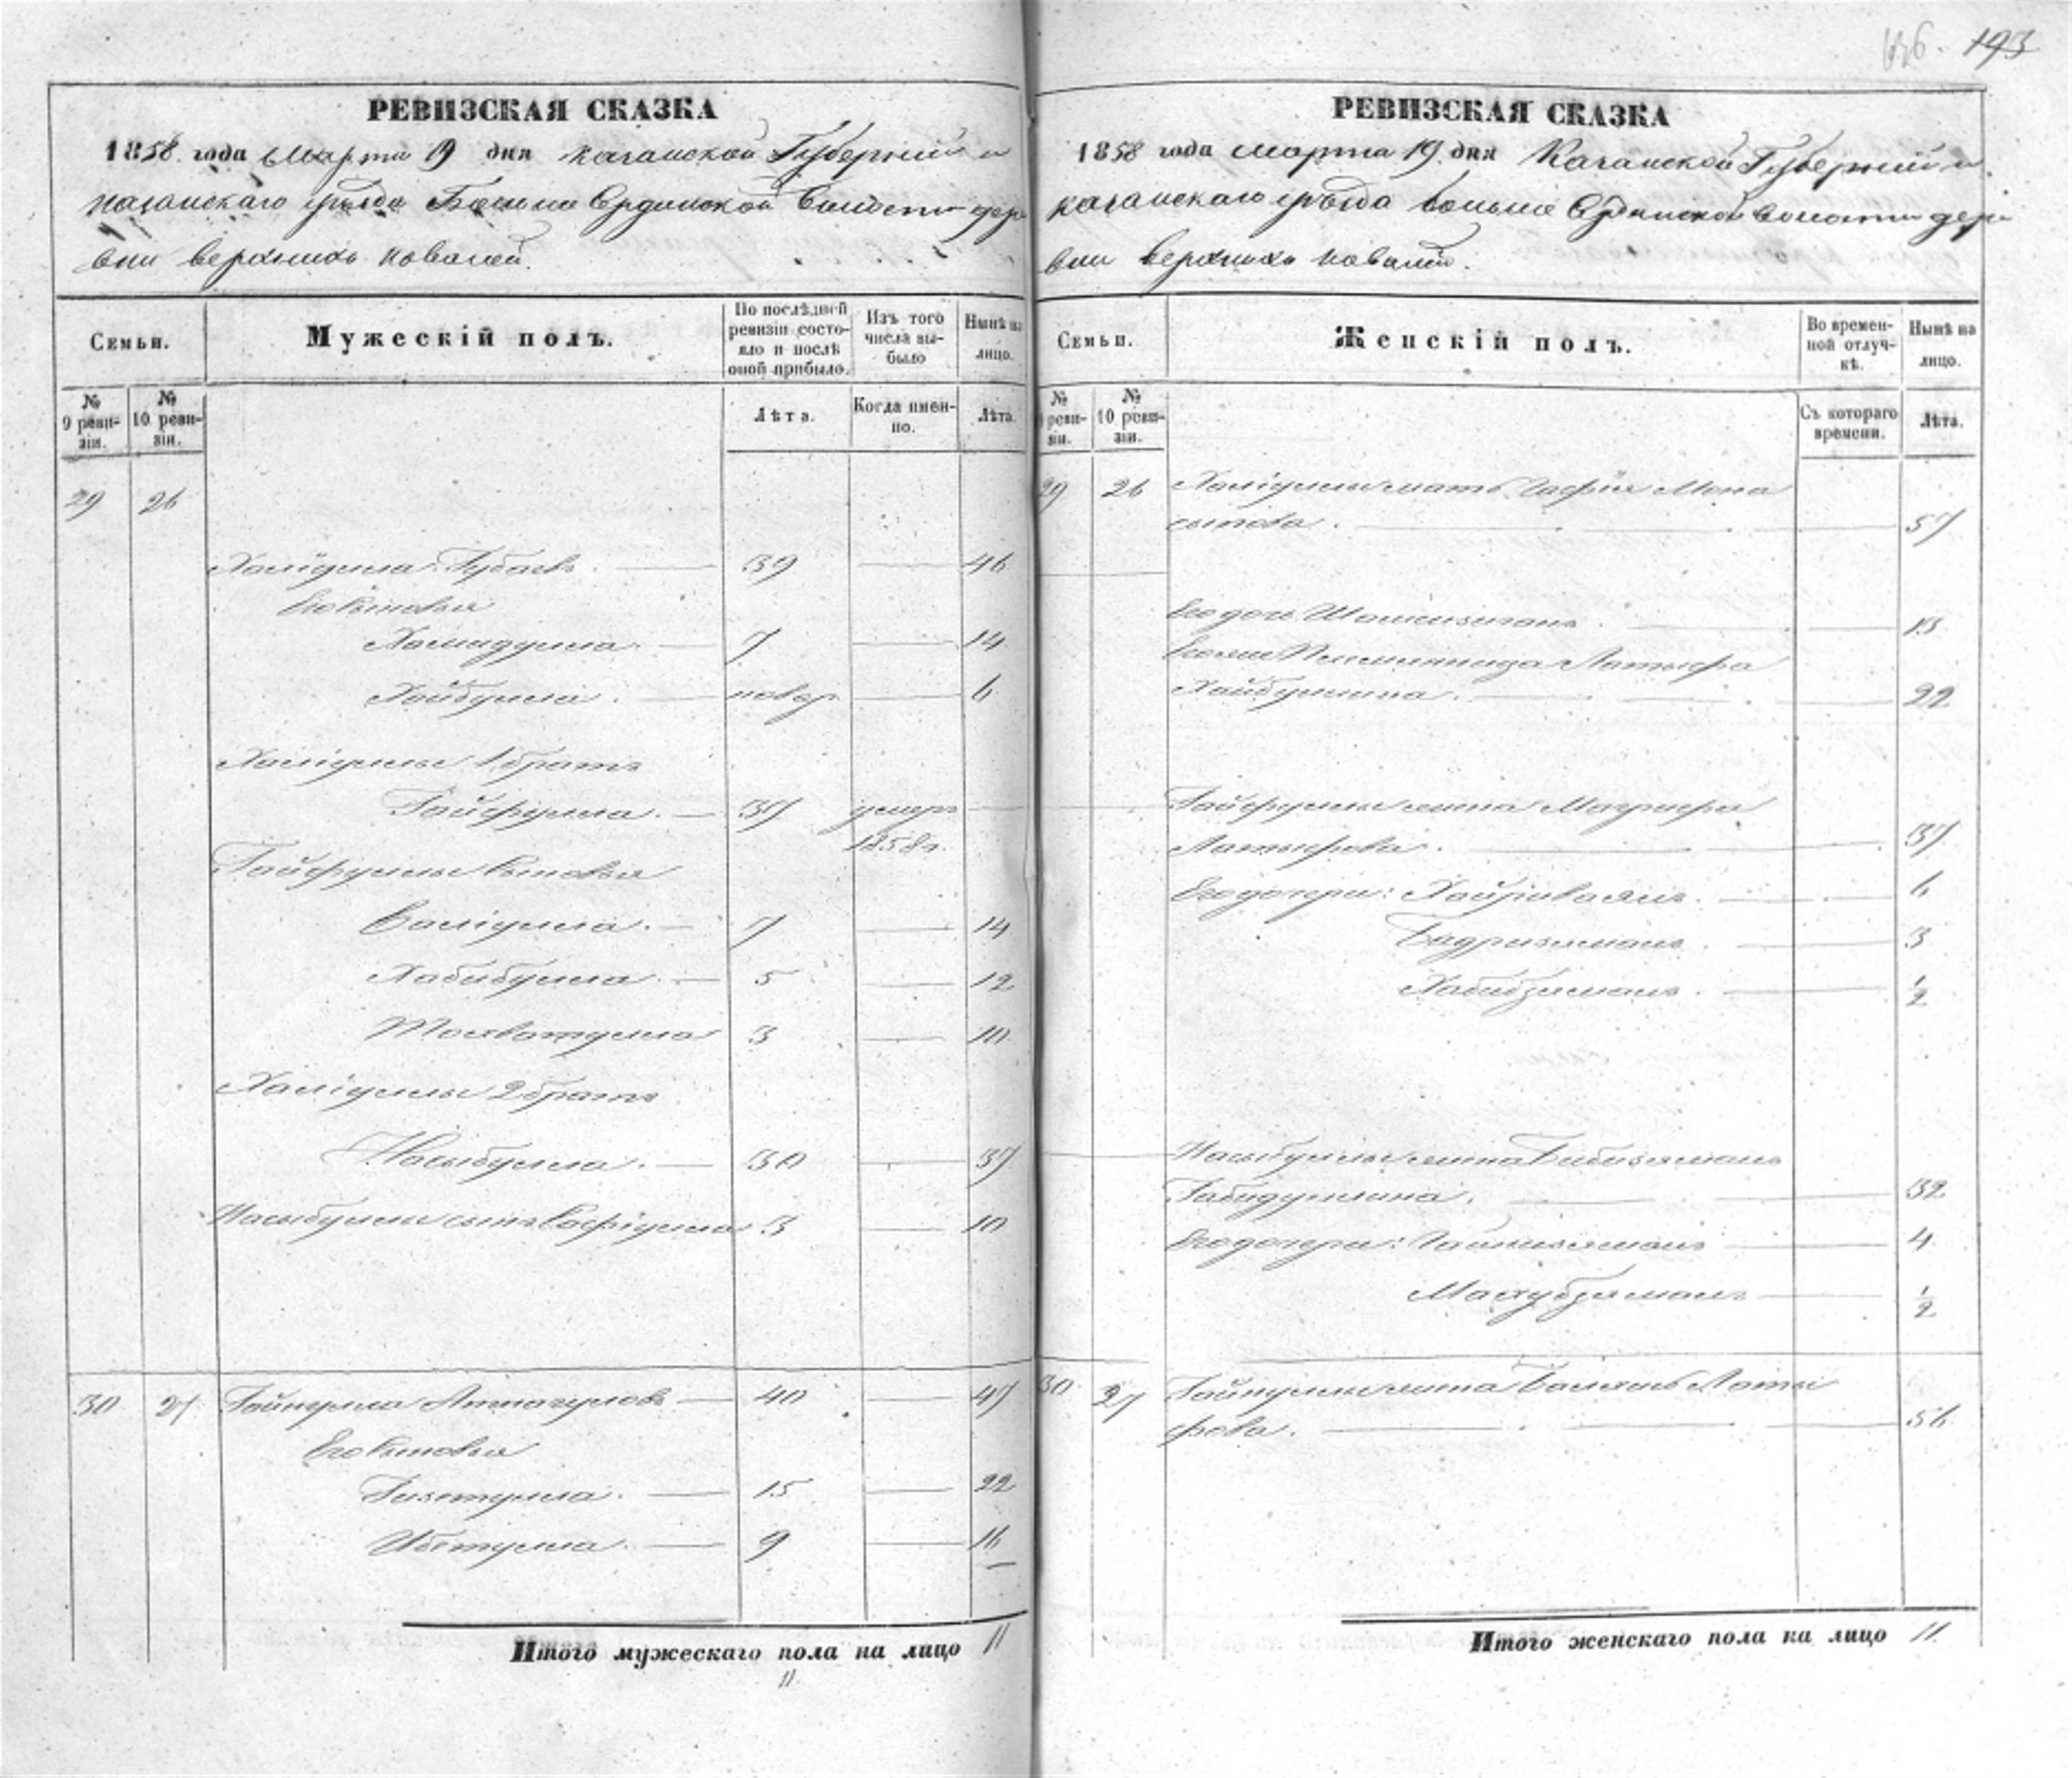 193
РЕВИЗСКАЯ СКАЗКА
1858 года Марта 19 дня Казанской Губернии и
казанскаго уѣзда Больше Ердинской Волости дере
вни верхнихъ ковалей.
Семьи.
Мужескій полъ.
По послѣдней ревизіи состо-
яло и послѣ оной прибыло.
Изъ того числа вы-
было
Нынѣ на лицо.
№ 9 реви-
зіи.
№ 10 реви-
зіи.
Лѣта.
Когда имен-
но.
Лѣта.
29 26
Халідулла Губаевъ 39 46
Его Сыновья
Хамидулла. 7 14
Хайбулла. новор. 6
Халідуллы 1 братъ
Гайфулла. 37 умеръ
1858 г.
Гайфуллы Сыновья
Валідулла. 7 14
Хабибулла. 5 12
3 10
Халідуллы 2 братъ
Насыбулла. 30 37
Насыбуллы сынъ 3 10
30 27 Гайнулла 40 47
Его Сыновья
Гизетулла. 15 22
Ибетулла. 9 16
Итого мужескаго пола на лицо 11
11
РЕВИЗСКАЯ СКАЗКА
1858 года марта 19 дня Казанской Губернии и
казанскаго уѣзда больше Ердинской волости дере
вни верхнихъ ковалей.
Семьи.
Женскій полъ.
Во времен-
ной отлуч-
кѣ.
Нынѣ на лицо.
№ 9 реви-
зіи.
№ 10 реви-
зіи.
Съ котораго времени.
Лѣта.
29 26 Халідуллы мать Мона
сыпова. 57
Его дочь 13
Племянница Латыфа
Хайбуллина. 22
Гайфуллы жена
Латыфова. 37
Его дочери: 6
Бадризяманъ. 3
Хабибзяманъ. 1/2
Насыбуллы жена Бибизяманъ
Габидуллина. 32
Его дочери: 4
Махубзяманъ 1/2
30 27 Гайнуллы жена Латы
фова. 56
Итого женскаго пола на лицо 11.